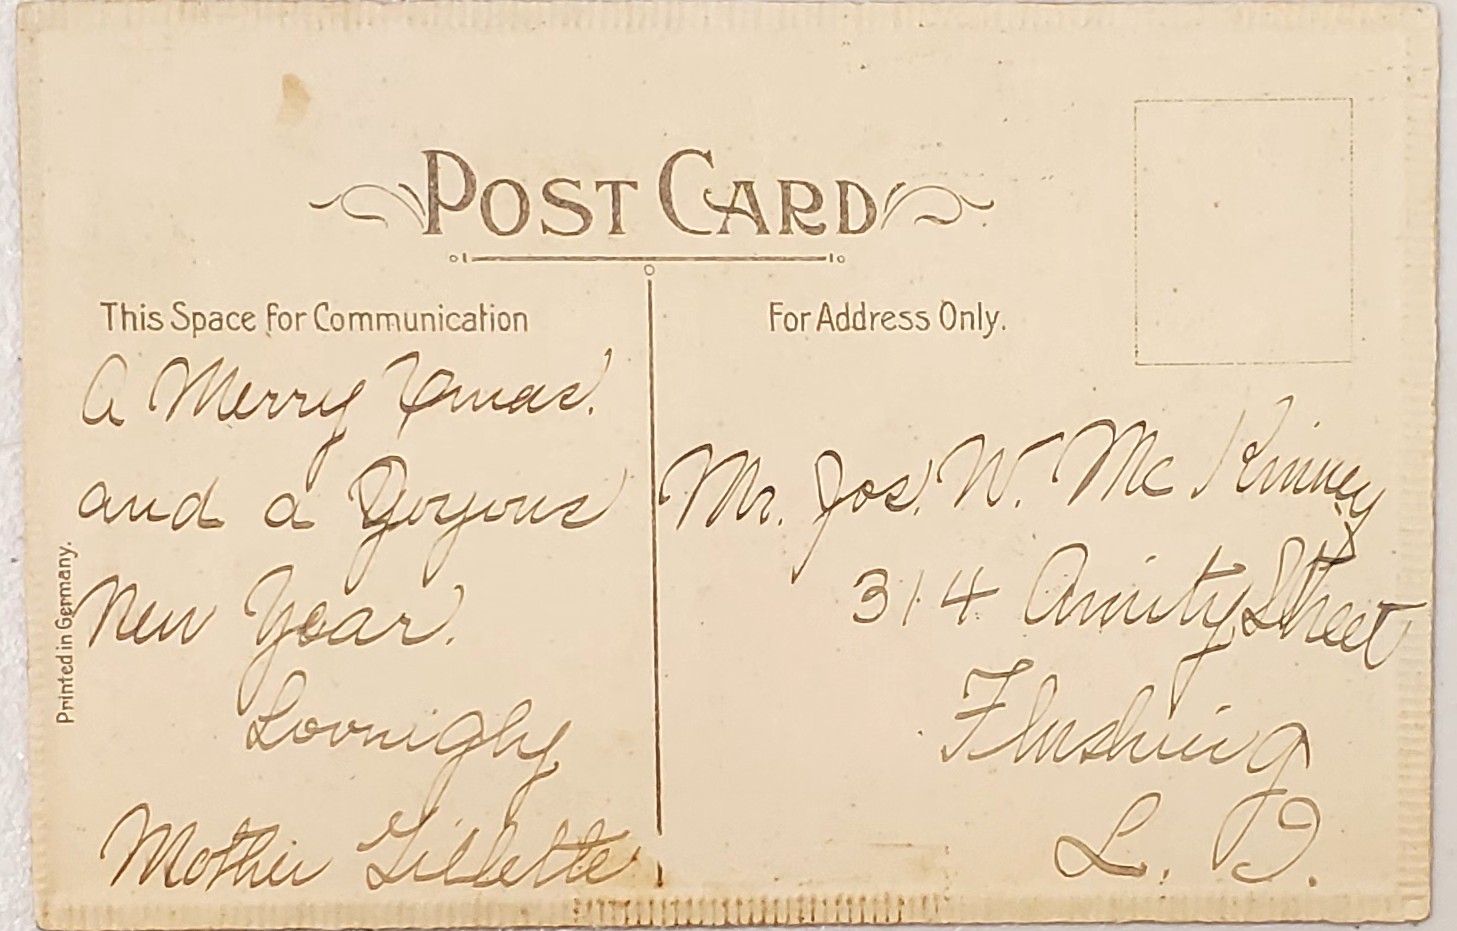 POST CARD
This Space for Communication
A Merry Xmas.
and a Joyous
New Year.
Lovingly
Mother Gillette
For Address Only.
Mr. Jos. W. McKinney
314 Amity Street
Flushing
L. I.
Printed in Germany.